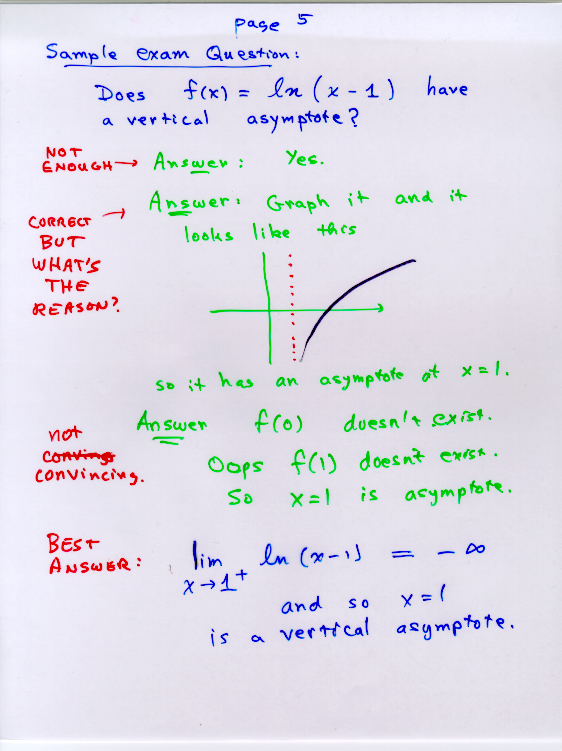 page 5
Sample exam Question:
Does f(x) = ln (x - 1) have
a vertical asymptote?
NOT
ENOUGH → Answer: Yes.
Answer: Graph it and it
looks like this
CORRECT →
BUT
WHAT'S
THE
REASON?
so it has an asymptote at x = 1.
Answer f(0) doesn't exist.
not
convincing.
Oops f(1) doesn't exist.
So x=1 is asymptote.
BEST
ANSWER:
lim ln (x-1) = - ∞
x→1+
and so x = 1
is a vertical asymptote.